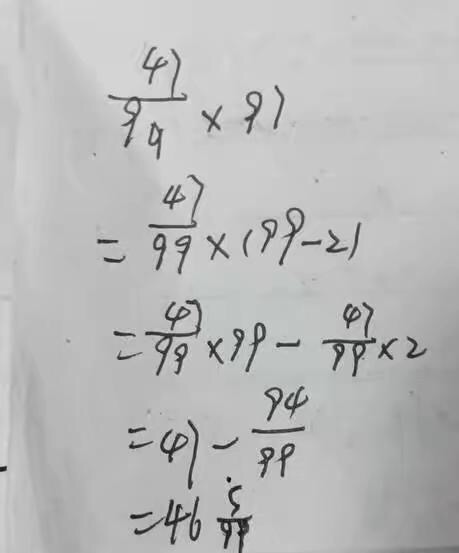 47/99 × 97
= 47/99 × (99 - 2)
= 47/99 × 99 - 47/99 × 2
= 47 - 94/99
= 46 5/99